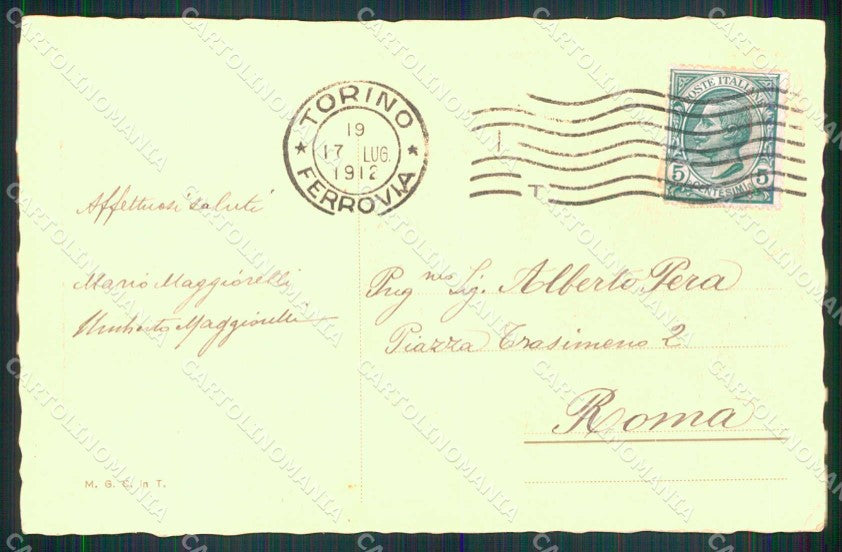 TORINO
19
17 LUG.
1912
FERROVIA
I
T
POSTE ITALIANE
5 CENTESIMI 5
Affettuosi saluti
Mario Maggiorelli
Umberto Maggiorelli
Preg mo Sig. Alberto Pera
Piazza Trasimeno 2
Roma
M. G. C. in T.
CARTOLINOMANIA